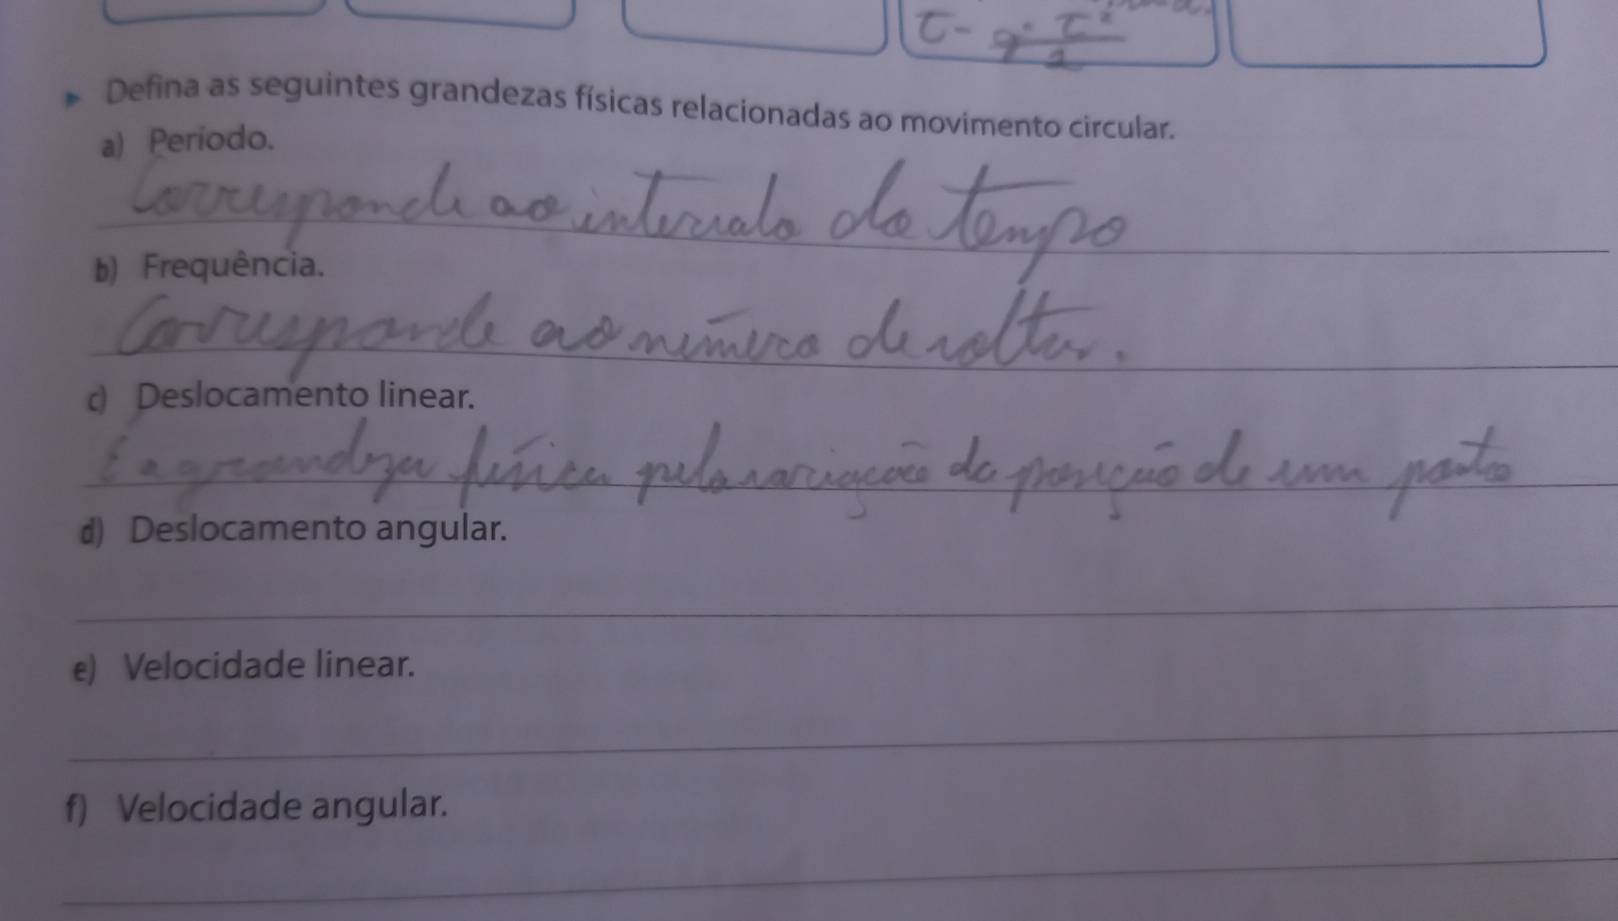 Defina as seguintes grandezas físicas relacionadas ao movimento circular.
a) Período.
Corresponde ao intervalo de tempo
b) Frequência.
Corresponde ao número de voltas.
c) Deslocamento linear.
É a grandeza física pela variação da posição de um ponto
d) Deslocamento angular.
e) Velocidade linear.
f) Velocidade angular.